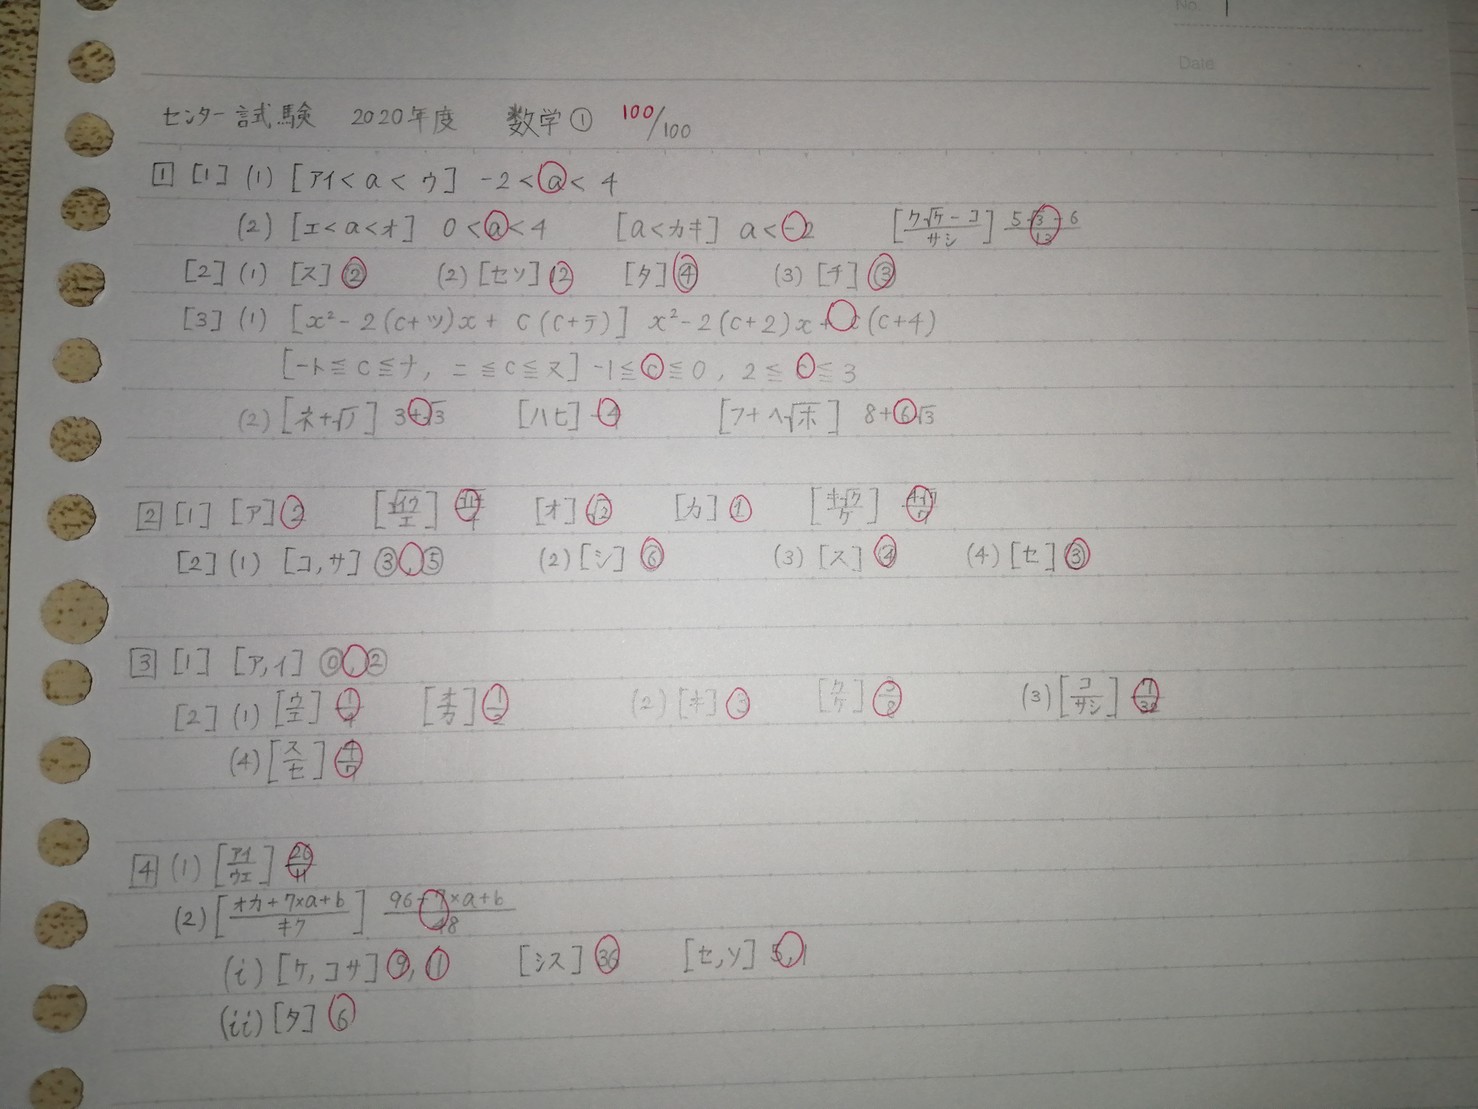 No. 1
Date
センター試験 2020年度 数学① 100/100
1 [1] (1) [アイ<a<ウ] -2<a<4
(2) [エ<a<オ] 0<a<4 [a<カキ] a<-2 [ク√ケ-コ/サシ] 5√3-6/13
[2] (1) [ス] ② (2) [セソ] 12 [タ] ④ (3) [チ] ③
[3] (1) [x²-2(c+ツ)x+c(c+テ)] x²-2(c+2)x+c(c+4)
[-ト≦c≦ナ, ニ≦c≦ヌ] -1≦c≦0, 2≦c≦3
(2) [ネ+√ノ] 3+√3 [ハヒ] -4 [フ+ヘ√ホ] 8+6√3
2 [1] [ア] 2 [√イウ/エ] √14/4 [オ] √2 [カ] 1 [キ√ク/ケ] 4√7/7
[2] (1) [コ,サ] ③,⑤ (2) [シ] ⑥ (3) [ス] ④ (4) [セ] ③
3 [1] [ア,イ] ⓪,②
[2] (1) [ウ/エ] 1/4 [オ/カ] 1/2 (2) [キ] 3 [ク/ケ] 3/8 (3) [コ/サシ] 7/32
(4) [ス/セ] 4/7
4 (1) [アイ/ウエ] 26/11
(2) [オカ+7×a+b/キク] 96+7×a+b/48
(i) [ケ,コサ] 9, 11 [シス] 36 [セ,ソ] 5,1
(ii) [タ] 6